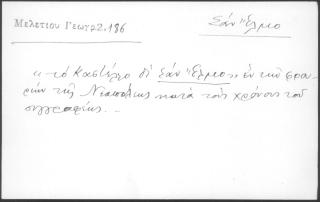 Μελετίου Γεωγρ2.186
Σὰν Ἔλμο
« τὸ Καστέλλο δὶ Σὰν Ἔλμο » ἐν τῇ
τῆς Νεαπόλεως κατὰ τοὺς χρόνους τοῦ
συγγραφέως. _